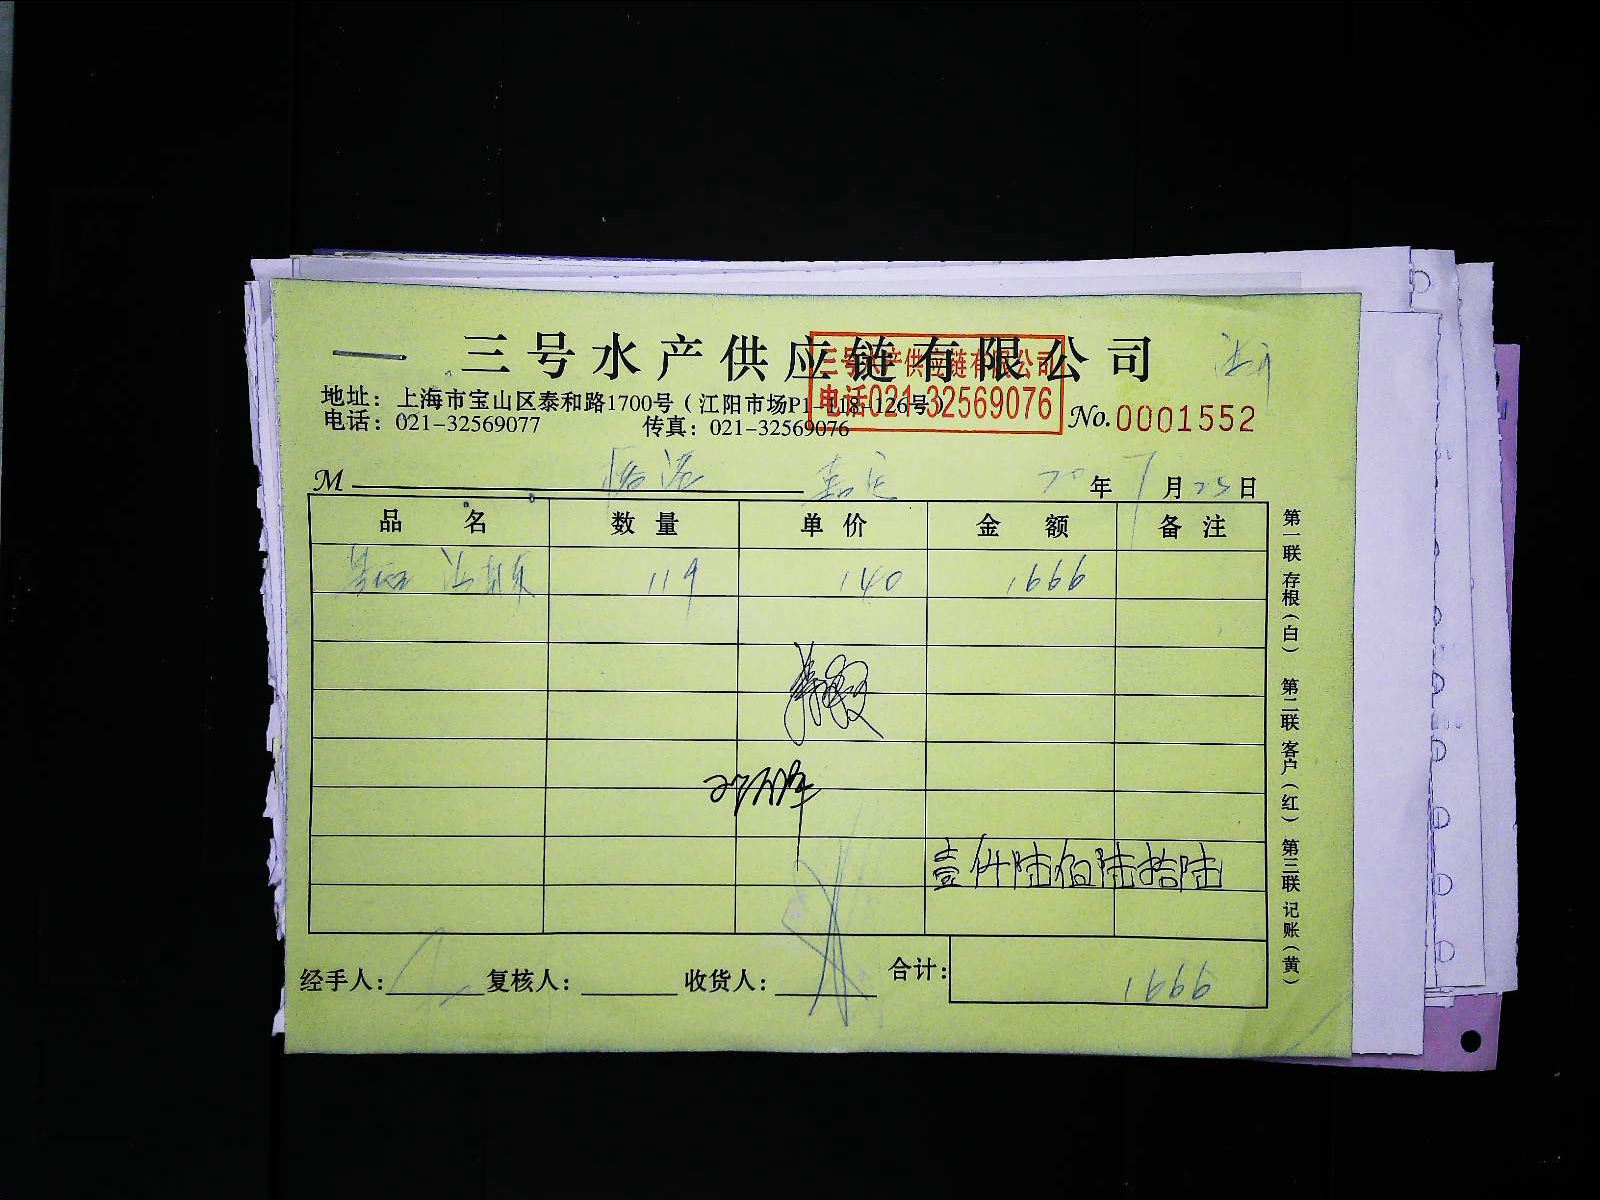 三号水产供应链有限公司
三号水产供应链有限公司
电话021-32569076
地址：上海市宝山区泰和路1700号（江阳市场P1-118-126号）
电话：021-32569077 传真：021-32569076
No.0001552
M 嘉定 20年7月23日
品名 数量 单价 金额 备注
119 140 1666
壹仟陆佰陆拾陆
经手人： 复核人： 收货人： 合计： 1666
第一联 存根（白） 第二联 客户（红） 第三联 记账（黄）